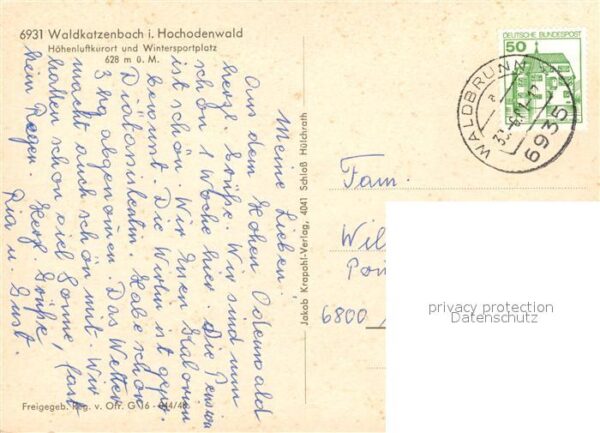 6931 Waldkatzenbach i. Hochodenwald
Höhenluftkurort und Wintersportplatz
628 m ü. M.
Meine Lieben!
Aus dem Hohen Odenwald
herzl. Grüße. Wir sind nun
schon 1 Woche hier. Die Pension
ist schön. Wir
bewusst. Die Wirtin ist gepr.
Diätassistentin. Habe schon
3 kg abgenommen. Das Wetter
macht auch schön mit. Wir
hatten schon viel Sonne, fast
kein Regen. Herzl. Grüße,
Ria u. Gust.
Freigegeb. Reg. v. Ofr. G 16
Jakob Krapohl-Verlag, 4041 Schloß Hülchrath
DEUTSCHE BUNDESPOST
50
WALDBRUNN
a
6935
Fam.
Wil
6800
privacy protection
Datenschutz